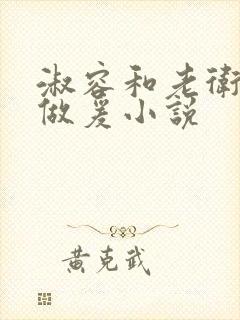 淑容和老衛
做爰小說
黃克武